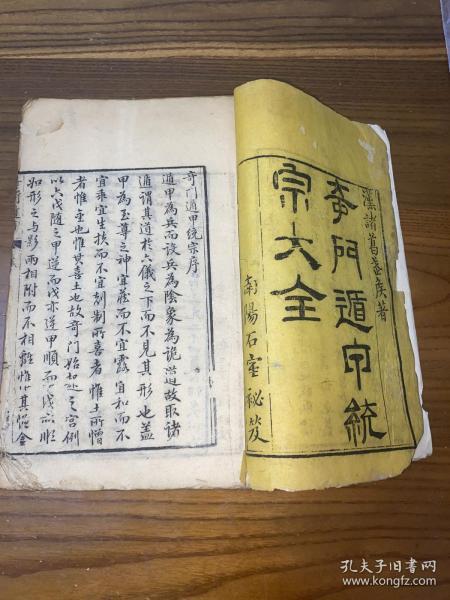 漢諸葛武侯著
奇門遁甲統
宗大全
南陽石室秘笈
奇門遁甲統宗序
遁甲為兵而設兵為陰象為詭道故取諸
遁謂其道於六儀之下而不見其形也蓋
甲為至尊之神宜藏而不宜露宜和而不
宜乖宜生扶而不宜剋制所喜者惟土所憎
者惟金也惟其喜土也故奇門始起之宮例
以六戊隨之甲逆而戊亦逆甲順而戊亦順
如形之与影兩相附而不相離惟其憎金
孔夫子旧书网
www.kongfz.com